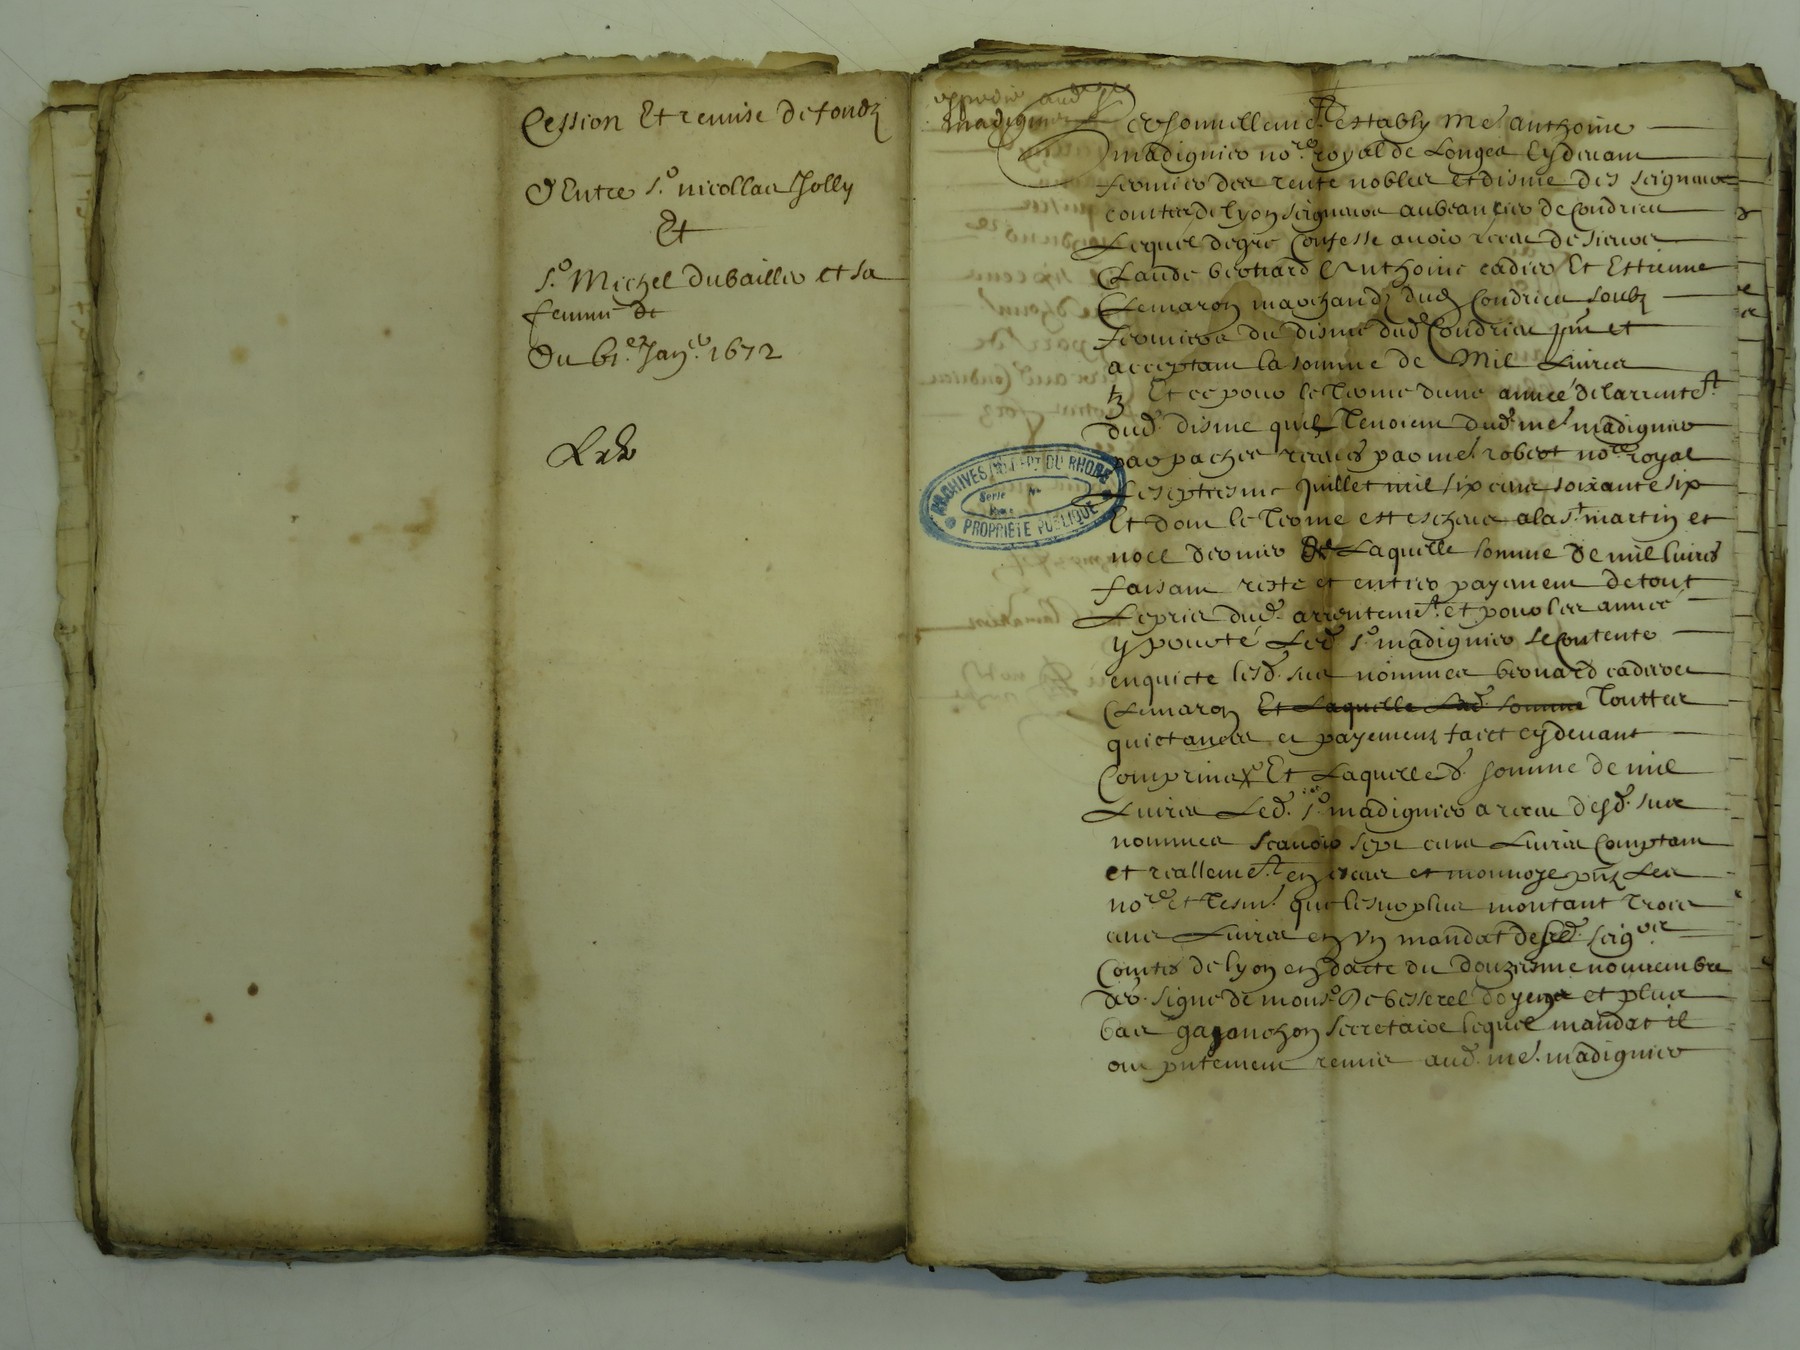 Cession Et remise de fondz
Entre s.r nicollas Jolly
Et
s.r Michel dubaillier et sa
femme
Du 6.e Janv.er 1672
expedié aud
madignier
Personnellem.t estably me.e anthoine
madignier no.re royal de Longes cydevant
fermier des rente nobles et disme des seigneurs
comtes de lyon seigneurs de Condrieu
Lequel de gré Confesse avoir receu de sieurs
Claude bertiard Anthoine cadier Et Estienne
Clemaron marchandz dud Condrieu soubz
fermiers du disme dud Condrieu pnt et
acceptant la somme de Mil Livres
tz Et ce pour le Terme dune année de larrentem.t
dud. disme quilz Tenoient dud. me. madignier
par paches receus par me. robert no.re royal
Le septiesme Juillet mil six cens soixante six
Et dont le Terme est escheu a la s.t martin et
noel dernier Laquelle somme de mil livres
faisant reste et entier payement de tout
Le prix dud. arrentem.t et pour les année
y porté Led s.r madignier se Contente
en quicte lesd. sus nommes bertiard cadier et
Clemaron Et Laquelle Lad. somme Touttes
quictances et payemenz faict cydevant
Comprinses Et Laquelle d. somme de mil
Livres Led. s.r madignier a receu desd. sus
nommes scavoir sept cens Livres Comptant
et reallem.t en escus et monnoye pnz Les
no.re Et Tesm. que le surplus montant Trois
cens Livres en vn mandat desd. seig.rs
Comtes de lyon en datte du douziesme nouvembre
der. signe de mons.r de besserel doyen et plus
bas gayanchon secretaire lequel mandat il
ont pntement remis aud. me. madignier
ARCHIVES DU DEPT DU RHONE
Serie
PROPRIETE PUBLIQUE